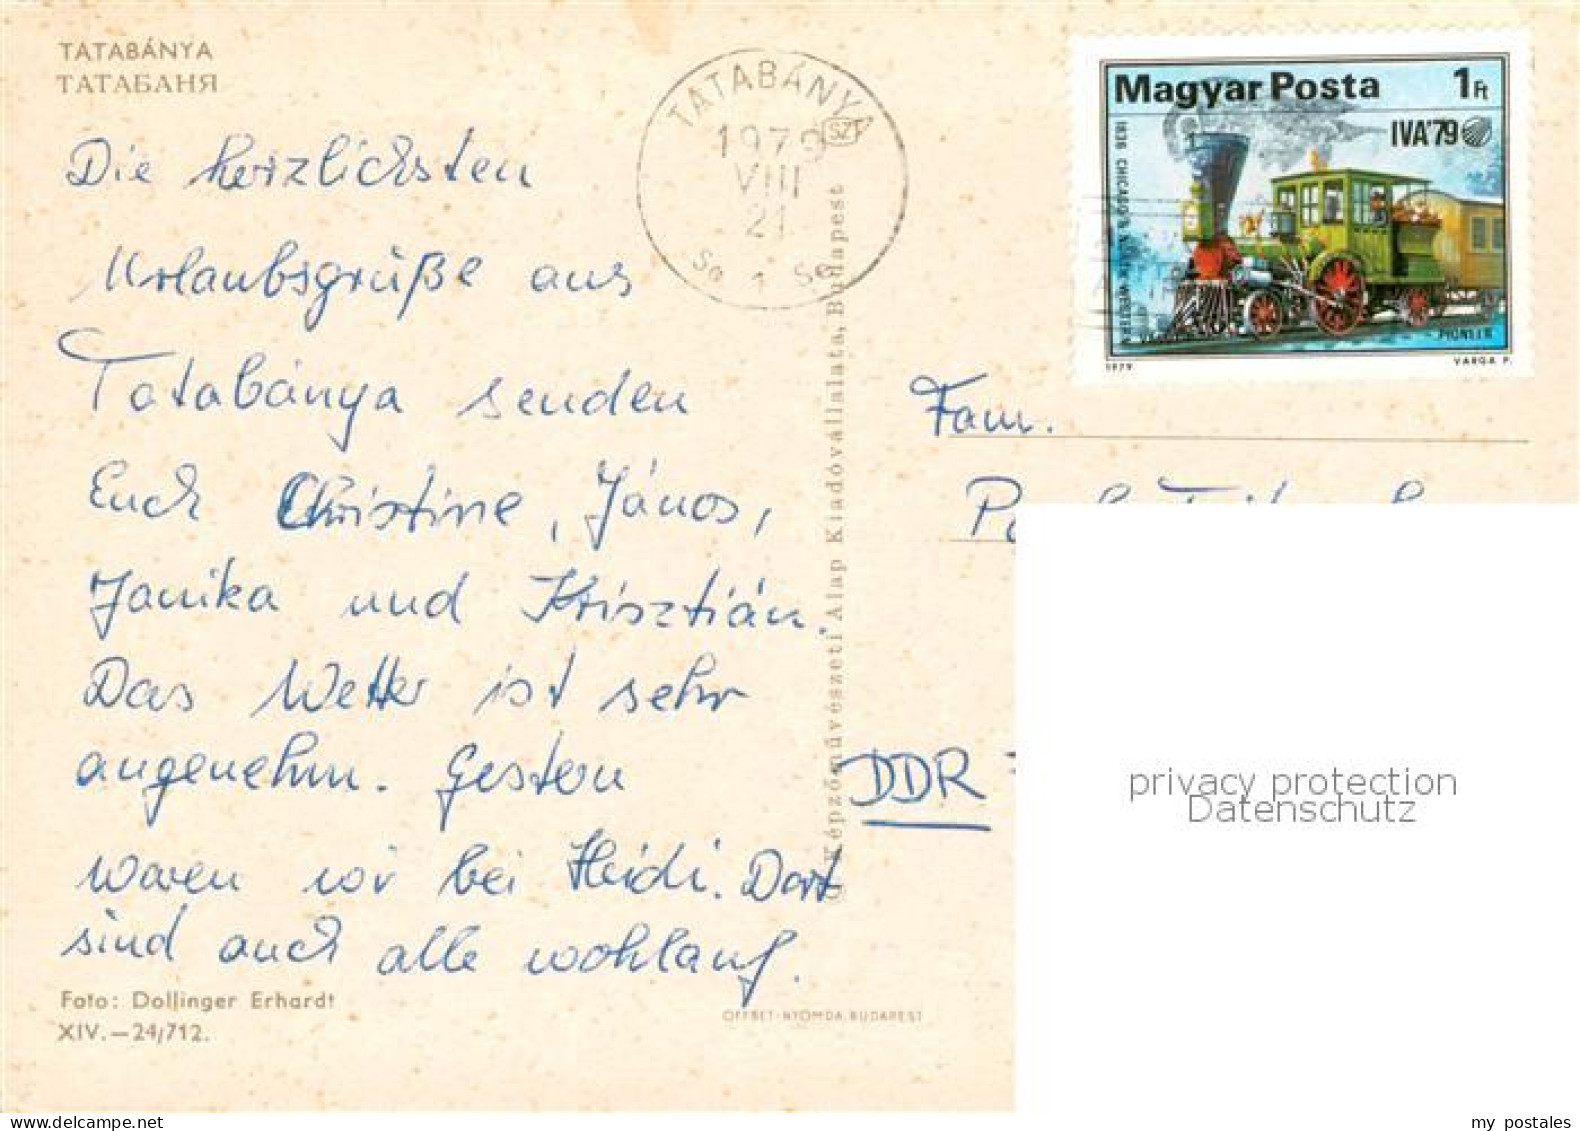 TATABÁNYA
ТАТАБАНЯ
Die herzlichsten
Urlaubsgrüße aus
Tatabánya senden
Euch Christine, János,
Janika und Krisztián.
Das Wetter ist sehr
angenehm. Gestern
waren wir bei Heidi. Dort
sind auch alle wohlauf.
Foto: Dollinger Erhardt
XIV.—24/712.
OFFSET-NYOMDA BUDAPEST
Képzőművészeti Alap Kiadóvállalata, Budapest
TATABÁNYA
1979
VIII
21
1
Magyar Posta 1Ft
IVA'79
1836 CHICAGO & NORTH WESTERN
PIONEER
1979 VARGA P.
Fam.
DDR
privacy protection
Datenschutz
my postales